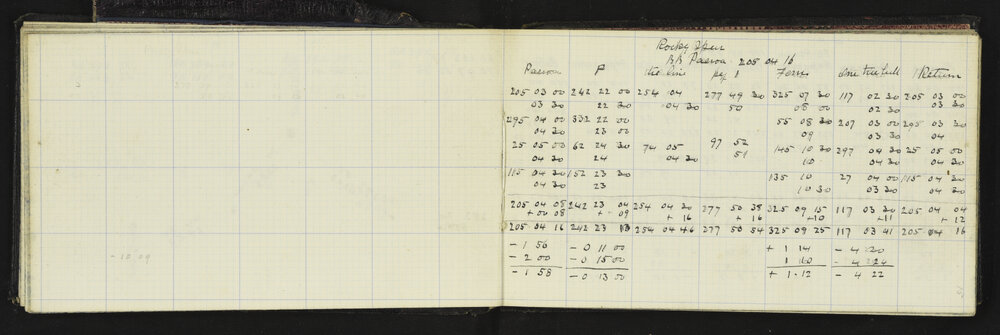 Rocky Spur
Paeroa 205 04 16
Paeroa P the line peg 1 Fern One Tree Hill Return
205 03 00 242 22 00 254 04 277 49 30 325 07 30 117 02 30 205 03 00
03 30 22 30 04 30 50 08 00 02 30 03 30
295 04 00 332 22 00 55 08 30 207 03 00 295 03 30
04 30 23 00 09 03 30 04
25 05 00 62 24 30 74 05 97 52 145 10 30 297 04 30 25 05 00
04 30 24 04 30 51 10 04 30 04 30
115 04 30 152 23 30 135 10 27 04 00 115 04 30
04 30 23 10 30 03 30 04 30
205 04 08 242 23 04 254 04 30 277 50 38 325 09 15 117 03 30 205 04 04
+ 00 08 + 09 + 16 + 16 + 10 + 11 + 12
205 04 16 242 23 13 254 04 46 277 50 54 325 09 25 117 03 41 205 04 16
- 1 56 - 0 11 00 + 1 14 - 4 20
- 2 00 - 0 15 00 1 10 - 4 24
- 1 58 - 0 13 00 + 1 12 - 4 22